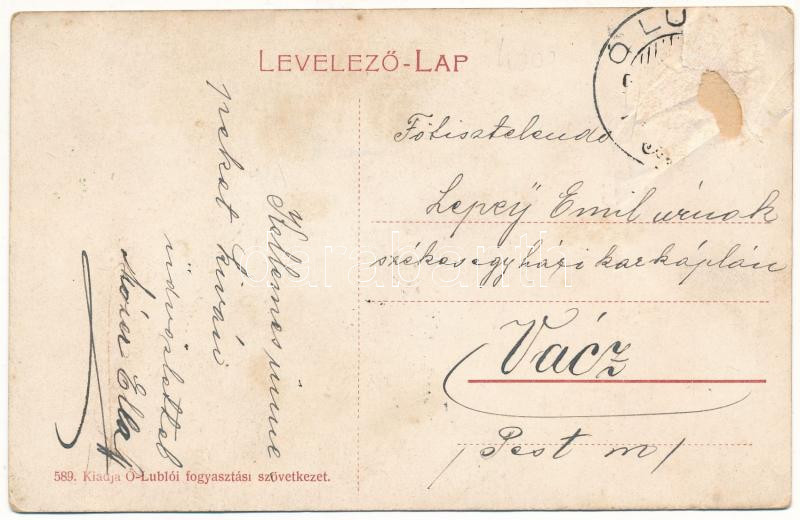 LEVELEZŐ-LAP
Ó LU
Főtisztelendő
Lepey Emil úrnak
székesegyházi karkáplán
Vácz
/Pest m/
Kellemes ünne
peket kíván
üdvözlettel
Ella
589. Kiadja Ó-Lublói fogyasztási szövetkezet.
darabanth